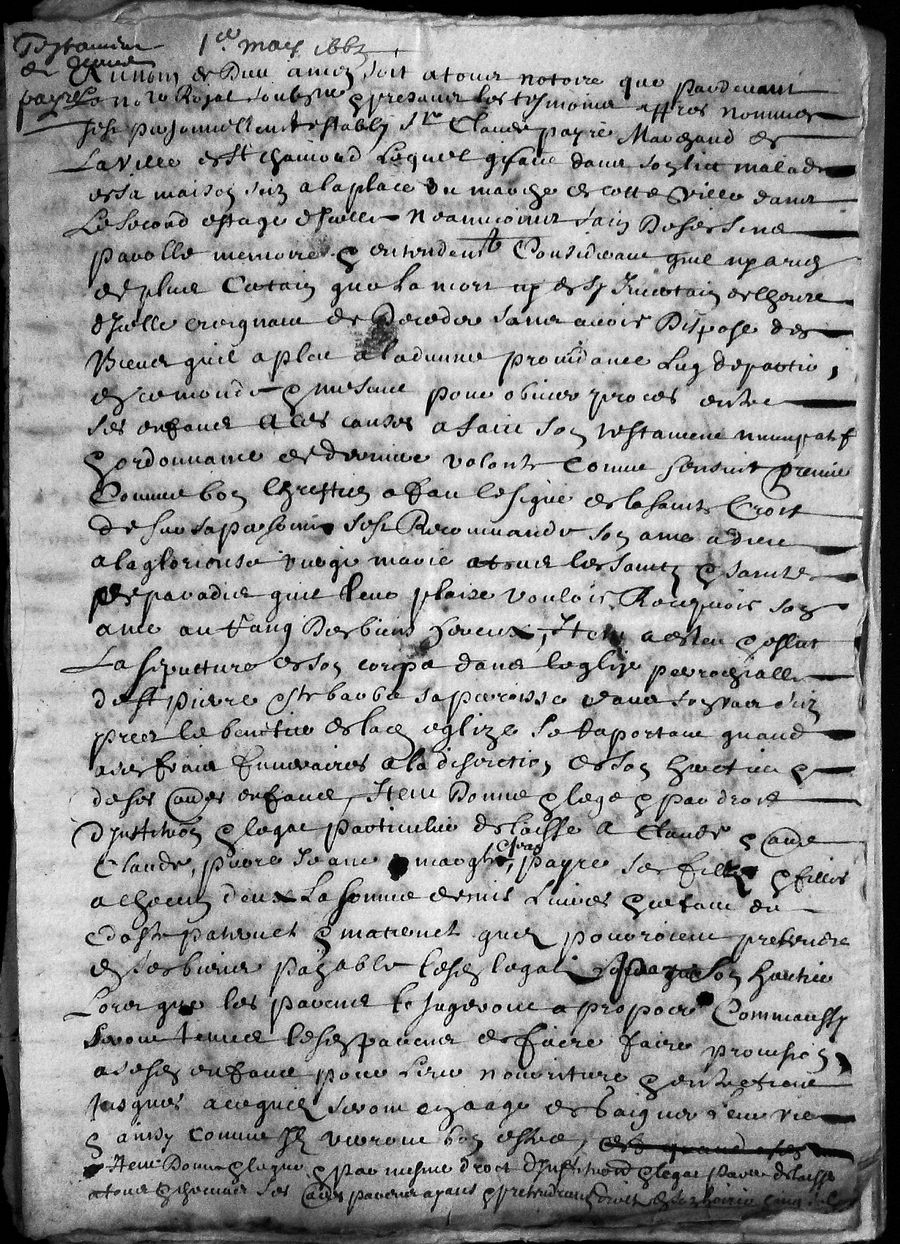 Testament
de
payre
1er may 166
Au nom de Dieu amen soit a tous notoire que pardevant
le no.re Royal soubsne & presans les tesmoins appres nommes
sest personnellement estably Sr Claude payre Marchand de
La Ville de St chaimond Lequel gisant dans son lict malade
en sa maison size a la place du marche de cette Ville dans
Le second estage d'Icelle Neanmoings sain de ses sens
parolle memoire & entendemt Considerant quil ny a rien
de plus Certain que La mort ny de sy Incertain de lheure
d'Icelle craignant de Deceder sans avoir Dispose des
Biens quil a pleu a la divine providance Luy departir
en ce monde & mesme pour obvier proces entre
ses enfans A ces causes a faict son testament nuncupatif
& ordonnance de derniere volonte Comme sensuit premier
Comme bon Chrestien a fait le signe de la sainte Croix
dessus sa personne sest Recommande son ame a dieu
a la glorieuse vierge marie a tous les saints & saintes
de paradis quil leur plaise vouloir Recepvoir son
ame au rang des bien heureux, Item a esleu & eslit
La sepulture de son corps dans leglise parrochialle
de St pierre Ste barbe sa paroisse dans son vas siz
pres le benitier de lad eglize se Raportant quand
a ses frais funeraires a la discretion de son heritier &
de ses autres enfans, Item Donne & legue & par droit
d'Institution & legat particulier delaisse a Claude & autre
Claude, pierre Jeanne & payre ses fils & filles
a chacun deux La somme de mil Livres
paternel & maternel quilz pourroient pretendre
en ses biens payable lesd legats par son heritier
Lors que les parens le jugeront a propos Comm aussy
seront tenus lesd parens de faire faire provision
a sesd enfans pour Leur nourriture & entretient
Jusques a ce quilz seront en aage de gaigner Leur vie
& ainsy comme Ilz verront bon estre,
Item Donne & legue & par mesme droit d'Institution & legat delaisse
a tous & chacuns ses autres parens ayans & pretendans droit en ses biens cinq